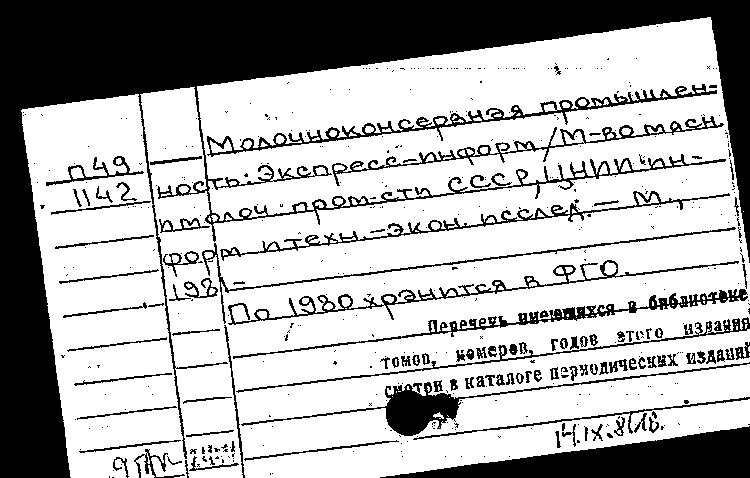 Молочноконсервная промышлен-
П49
1142
ность: Экспресс-информ/М-во мясн.
и молоч. пром-сти СССР, ЦНИИ ин-
форм и техн.-экон. исслед. — М.,
1981-
По 1980 хранится в ФГО.
Перечень имеющихся в библиотеке
томов, номеров, годов этого издания
смотри в каталоге периодических изданий
14.IX.81